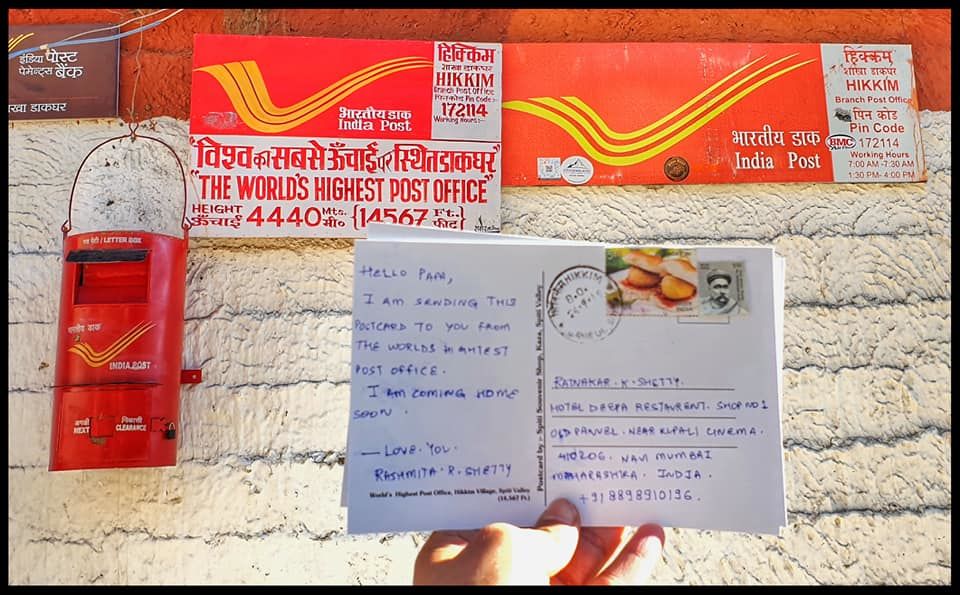 इंडिया पोस्ट
पेमेन्ट्स बैंक
शाखा डाकघर
हिक्किम
शाखा डाकघर
HIKKIM
Branch Post Office
पिन कोड Pin Code:-
172114
Working Hours:-
भारतीय डाक
India Post
"विश्व का सबसे ऊँचाई पर स्थित डाकघर"
"THE WORLD'S HIGHEST POST OFFICE"
HEIGHT
ऊँचाई 4440 Mts. मी० {14567 Ft. फीट}
भारतीय डाक
India Post
हिक्किम
शाखा डाकघर
HIKKIM
Branch Post Office
पिन कोड
Pin Code
BMC 172114
Working Hours
7:00 AM -7:30 AM
1:30 PM- 4:00 PM
पत्र पेटी / LETTER BOX
भारतीय डाक
INDIA POST
अगली निकासी
NEXT CLEARANCE
HELLO PAPA,
I AM SENDING THIS
POSTCARD TO YOU FROM
THE WORLDS HIGHTEST
POST OFFICE.
I AM COMING HOME
SOON.
— LOVE. YOU.
RASHMITA. R. SHETTY
World's Highest Post Office, Hikkim Village, Spiti Valley
(14,567 Ft.)
Postcard by :- Spiti Souvenir Shop, Kaza, Spiti Valley
HIKKIM
B.O.
RATNAKAR. K. SHETTY.
HOTEL DEEPA RESTAURENT. SHOP NO 1
OLD PANVEL. NEAR K.
CINEMA.
410206. NAVI MUMBAI
MAHARASHTRA. INDIA.
+91 8898910196.